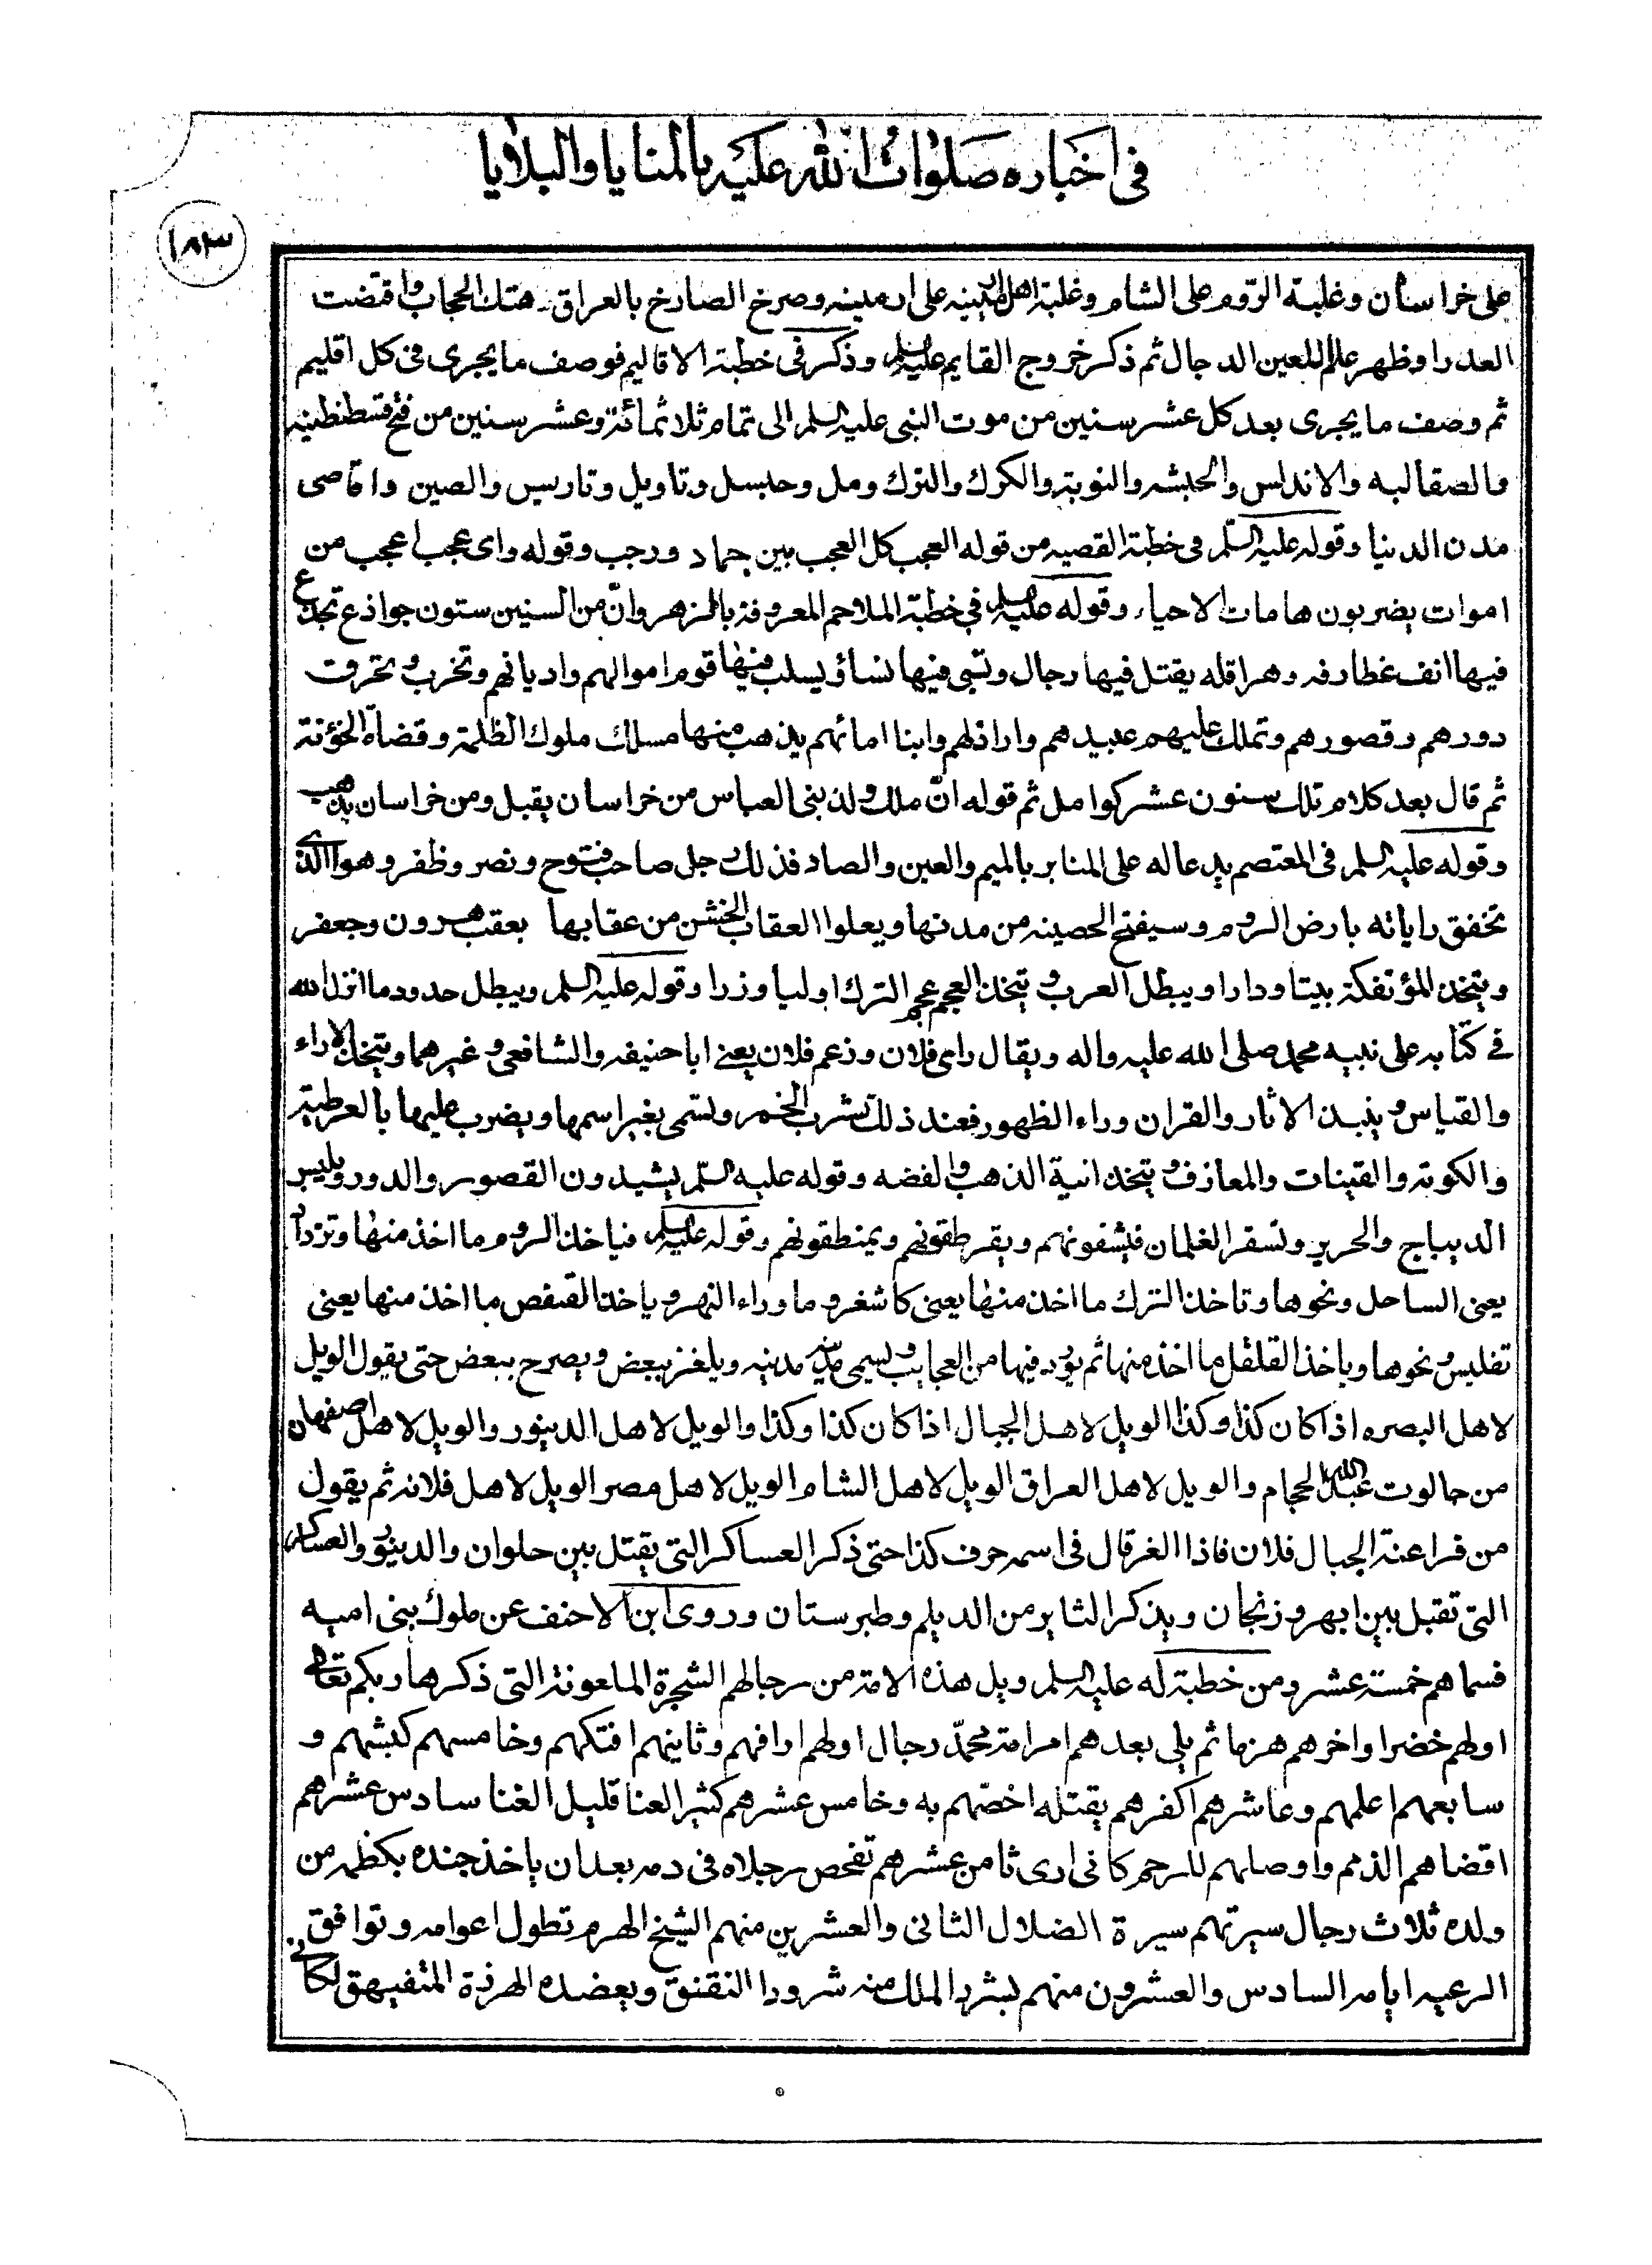 في اخباره صلوات الله عليه بالمنايا والبلايا
١٨٣
على خراسان وغلبة الروم على الشام وغلبة اهل ارمينيه على ارمينه وصرخ الصارخ بالعراق هتك الحجاب وافتضت
العذرا وظهر علم اللعين الدجال ثم ذكر خروج القايم عليه السلم وذكر في خطبة الاقاليم فوصف ما يجرى فى كل اقليم
ثم وصف ما يجرى بعد كل عشر سنين من موت النبى عليه السلم الى تمام ثلاثمائة وعشر سنين من فتح قسطنطينيه
والصقالبه والاندلس والحبشه والنوبة والكرك والترك ومل وحبسل وتاويل وتاريس والصين واقاصى
مدن الدنيا وقوله عليه السلم فى خطبة القصيه من قوله العجب كل العجب بين جماد ورجب وقوله واى عجب اعجب من
اموات يضربون هامات الاحياء وقوله عليه السلم في خطبة الملاحم المعروفة بالزهر وان من السنين ستون جواذع تجذع
فيها انف غطارفه وهراقله يقتل فيها رجال وتسبى فيها نسا ويسلب فيها قوم اموالهم واديانهم وتخرب وتحرق
دورهم وقصورهم وتملك عليهم عبيدهم واراذلهم وابنا امائهم يذهب منها مسلك ملوك الظلمة وقضاة الخؤنة
ثم قال بعد كلام تلك سنون عشر كوامل ثم قوله ان ملك ولد بنى العباس من خراسان يقبل ومن خراسان يذهب
وقوله عليه السلم فى المعتصم يدعا له على المنابر بالميم والعين والصاد فذلك رجل صاحب فتوح ونصر وظفر وهو الذى
تخفق راياته بارض الروم وسيفتح الحصينه من مدنها ويعلوا العقاب الخشن من عقابها بعقب هرون وجعفر
ويتخذ المؤتفكة بيتا ودارا ويبطل العرب ويتخذ العجم عجم الترك اوليا وزرا وقوله عليه السلم ويبطل حدود ما انزل الله
في كتابه على نبيه محمد صلى الله عليه واله ويقال راى فلان وزعم فلان يعنے ابا حنيفه والشافعى وغيرهما ويتخذ الاراء
والقياس وينبذ الاثار والقران وراء الظهور فعند ذلك تشرب الخمر وتسمى بغير اسمها ويضرب عليها بالعرطبة
والكوبة والقينات والمعازف ويتخذ انية الذهب والفضه وقوله عليه السلم يشيدون القصور والدور ويلبس
الديباج والحرير وتسفر الغلمان فيشنفونهم ويقرطقونهم ويمنطقونهم وقوله عليه السلم فياخذ الروم ما اخذ منها وتزداد
يعنى الساحل ونحوها وتاخذ الترك ما اخذ منها يعنى كاشغر وما وراء النهر وياخذ القفص ما اخذ منها يعنى
تفليس ونحوها وياخذ القلقل ما اخذ منها ثم يورد فيها من العجايب ويسمى مدينه مدينه ويلغز ببعض ويصرح ببعض حتى يقول الويل
لاهل البصره اذا كان كذا وكذا الويل لاهل الجبال اذا كان كذا وكذا والويل لاهل الدينور والويل لاهل اصفهان
من جالوت عبد الله الحجام والويل لاهل العراق الويل لاهل الشام الويل لاهل مصر الويل لاهل فلانه ثم يقول
من فراعنة الجبال فلان فاذا الغز قال فى اسمه حرف كذا حتى ذكر العساكر التى يقتل بين حلوان والدينور والعساكر
التى تقبل بين ابهر وزنجان ويذكر الثاير من الديلم وطبرستان وروى ابن الاحنف عن ملوك بنى اميه
فسماهم خمسة عشر ومن خطبة له عليه السلم ويل هذه الامة من رجالهم الشجرة الملعونة التى ذكرها ربكم تعالى
اولهم خضرا واخرهم هزما ثم يلى بعدهم امر امة محمد رجال اولهم ارافهم وثانيهم افتكهم وخامسهم كبشهم و
سابعهم اعلمهم وعاشرهم اكفرهم يقتله اخصهم به وخامس عشرهم كثير العنا قليل الغنا سادس عشرهم
اقضاهم الذمم واوصلهم للرحم كانى ارى ثامن عشرهم تفحص رجلاه فى دمه بعد ان ياخذ جنده بكظمه من
ولده ثلاث رجال سيرتهم سيرة الضلال الثانى والعشرين منهم الشيخ الهرم تطول اعوامه وتوافق
الرعيه ايامه السادس والعشرون منهم يشرد الملك منه شرود النقنق ويعضده الهزرة المتفيهق لكانى